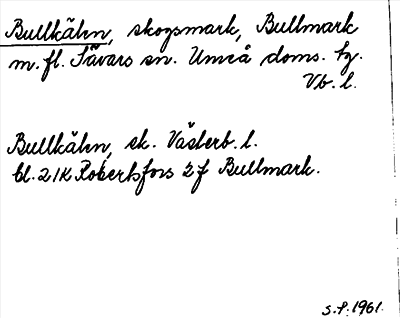 Bullkäln, skogsmark, Bullmark
m.fl. Sävars sn. Umeå doms. tg.
Vb. l.
Bullkäln, sk. Västerb. l.
bl. 21K Robertsfors 2f Bullmark.
S.P. 1961.